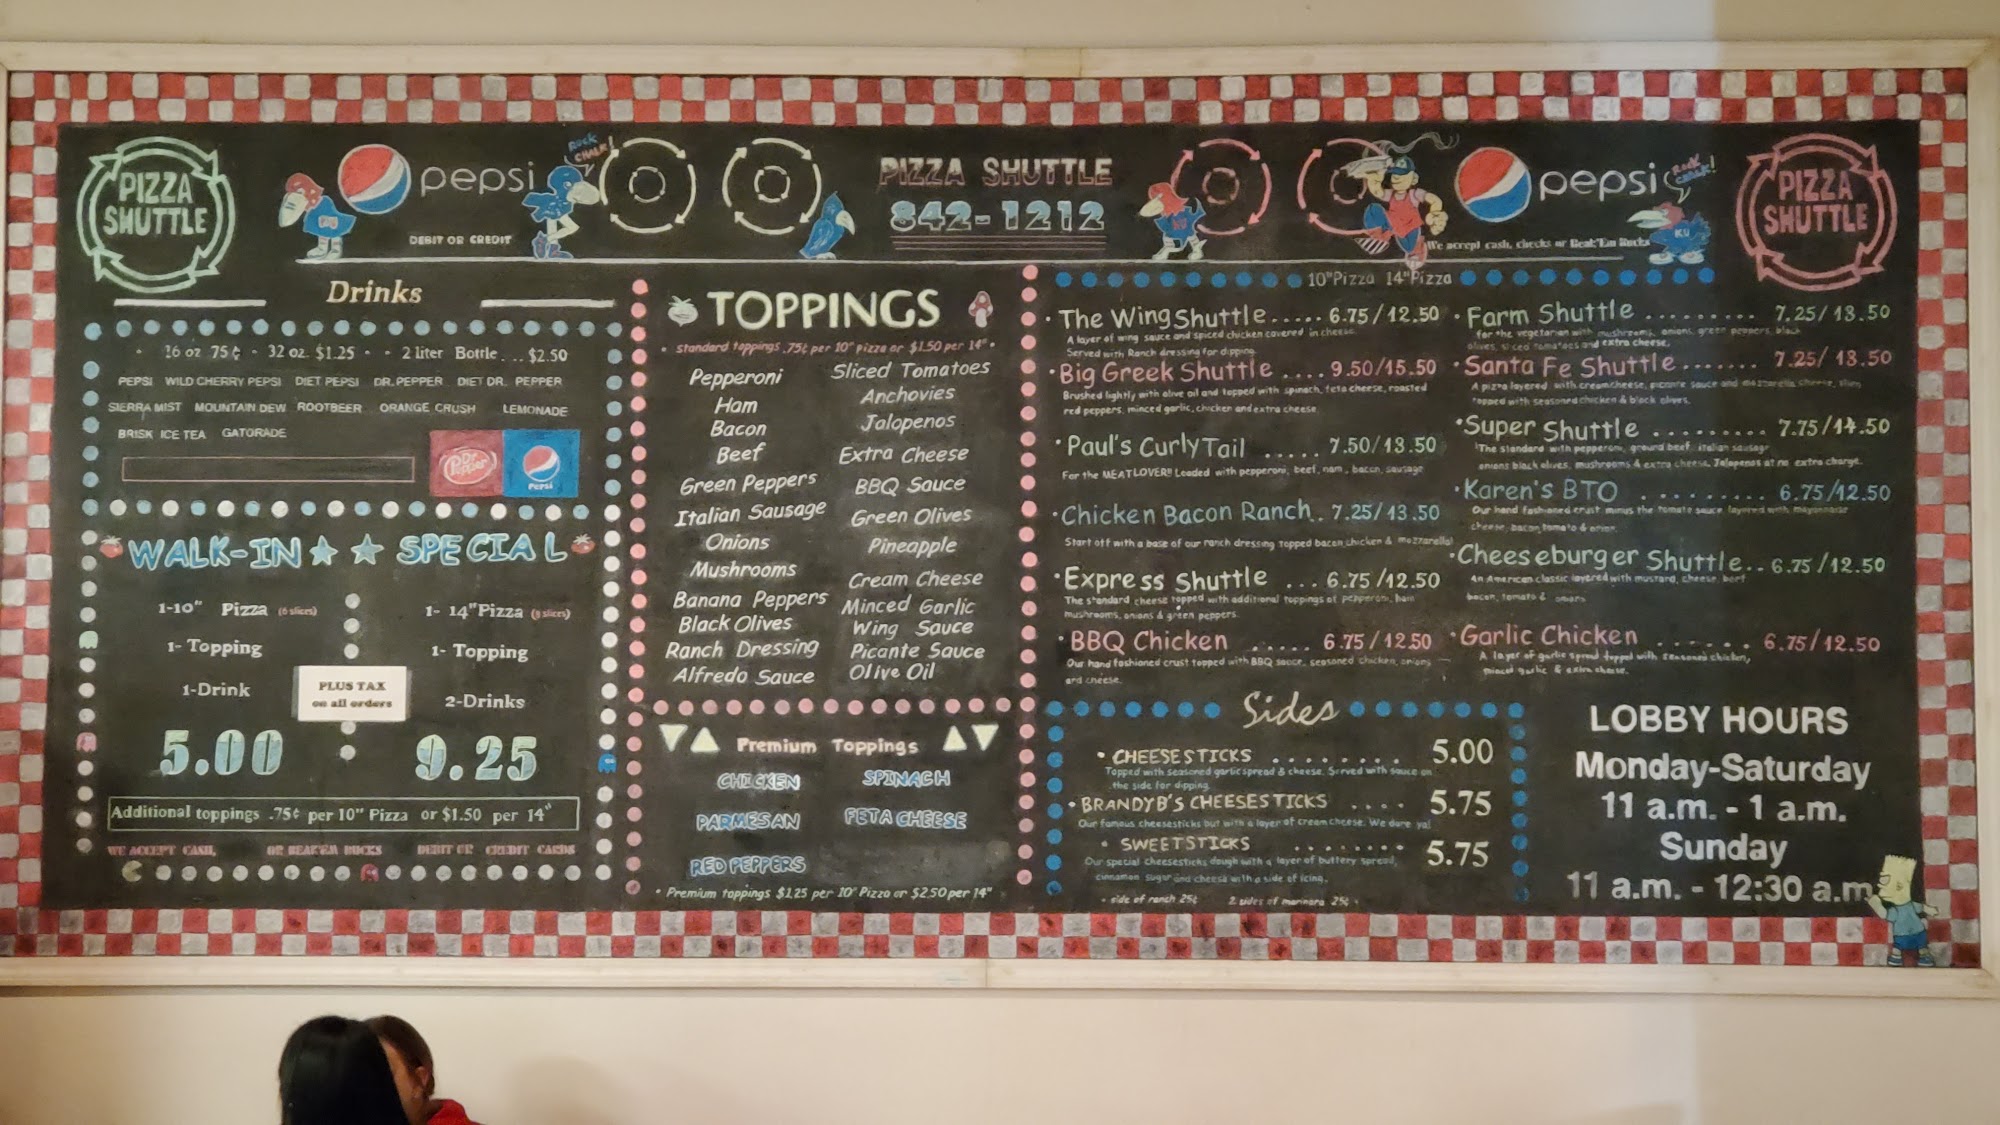 PIZZA
SHUTTLE
pepsi
ROCK
CHALK!
DEBIT OR CREDIT
PIZZA SHUTTLE
842-1212
pepsi
ROCK
CHALK!
We accept cash, checks or Beak'Em Bucks
KU
PIZZA
SHUTTLE
Drinks
16 oz 75¢ · 32 oz. $1.25 · · 2 liter Bottle... $2.50
PEPSI WILD CHERRY PEPSI DIET PEPSI DR. PEPPER DIET DR. PEPPER
SIERRA MIST MOUNTAIN DEW ROOTBEER ORANGE CRUSH LEMONADE
BRISK ICE TEA GATORADE
Dr Pepper
PEPSI
WALK-IN SPECIAL
1-10" Pizza (6 slices)
1- Topping
1-Drink
5.00
1- 14" Pizza (8 slices)
1- Topping
2-Drinks
9.25
PLUS TAX
on all orders
Additional toppings .75¢ per 10" Pizza or $1.50 per 14"
WE ACCEPT CASH, OR BEAK'EM BUCKS DEBIT OR CREDIT CARDS
TOPPINGS
· standard toppings .75¢ per 10" pizza or $1.50 per 14" ·
Pepperoni
Ham
Bacon
Beef
Green Peppers
Italian Sausage
Onions
Mushrooms
Banana Peppers
Black Olives
Ranch Dressing
Alfredo Sauce
Sliced Tomatoes
Anchovies
Jalapenos
Extra Cheese
BBQ Sauce
Green Olives
Pineapple
Cream Cheese
Minced Garlic
Wing Sauce
Picante Sauce
Olive Oil
Premium Toppings
CHICKEN
PARMESAN
RED PEPPERS
SPINACH
FETA CHEESE
· Premium toppings $1.25 per 10" Pizza or $2.50 per 14"
10" Pizza 14" Pizza
· The Wing Shuttle..... 6.75/12.50
A layer of wing sauce and spiced chicken covered in cheese.
Served with Ranch dressing for dipping.
· Big Greek Shuttle .... 9.50/15.50
Brushed lightly with olive oil and topped with spinach, feta cheese, roasted
red peppers, minced garlic, chicken and extra cheese.
· Paul's Curly Tail ..... 7.50/13.50
For the MEATLOVER!! Loaded with pepperoni, beef, ham, bacon, sausage
· Chicken Bacon Ranch.. 7.25/13.50
Start off with a base of our ranch dressing topped bacon, chicken & mozzarella!
· Express Shuttle ... 6.75/12.50
The standard cheese topped with additional toppings of pepperoni, ham
mushrooms, onions & green peppers.
· BBQ Chicken ..... 6.75/12.50
Our hand fashioned crust topped with BBQ sauce, seasoned chicken, onions
and cheese.
· Farm Shuttle ......... 7.25/13.50
for the vegetarian with mushrooms, onions, green peppers, black
olives, sliced tomatoes and extra cheese.
· Santa Fe Shuttle....... 7.25/13.50
A pizza layered with creamcheese, picante sauce and mozzarella cheese, then
topped with seasoned chicken & black olives.
· Super Shuttle ......... 7.75/14.50
The standard with pepperoni, ground beef, italian sausage
onions black olives, mushrooms & extra cheese. Jalapenos at no extra charge.
· Karen's BTO ......... 6.75/12.50
Our hand fashioned crust minus the tomato sauce, layered with mayonnaise
cheese, bacon, tomato & onion.
· Cheeseburger Shuttle.. 6.75/12.50
An American classic layered with mustard, cheese, beef
bacon, tomato & onions
· Garlic Chicken ...... 6.75/12.50
A layer of garlic spread topped with seasoned chicken,
minced garlic & extra cheese.
Sides
· CHEESESTICKS ........ 5.00
Topped with seasoned garlic spread & cheese. Served with sauce on
the side for dipping.
· BRANDYB'S CHEESESTICKS .... 5.75
Our famous cheesesticks but with a layer of cream cheese. We dare ya!
· SWEETSTICKS ........ 5.75
Our special cheesesticks dough with a layer of buttery spread,
cinnamon sugar and cheese with a side of icing.
· side of ranch 25¢ 2 sides of marinara 25¢ ·
LOBBY HOURS
Monday-Saturday
11 a.m. - 1 a.m.
Sunday
11 a.m. - 12:30 a.m.